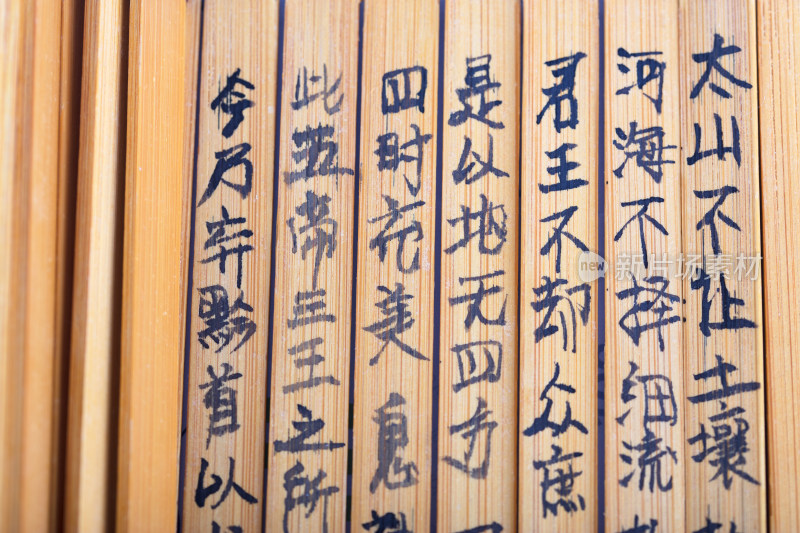 太山不让土壤
河海不择细流
君王不却众庶
是以地无四方
四时花美鬼
此五帝三王之所
今乃弃黔首以